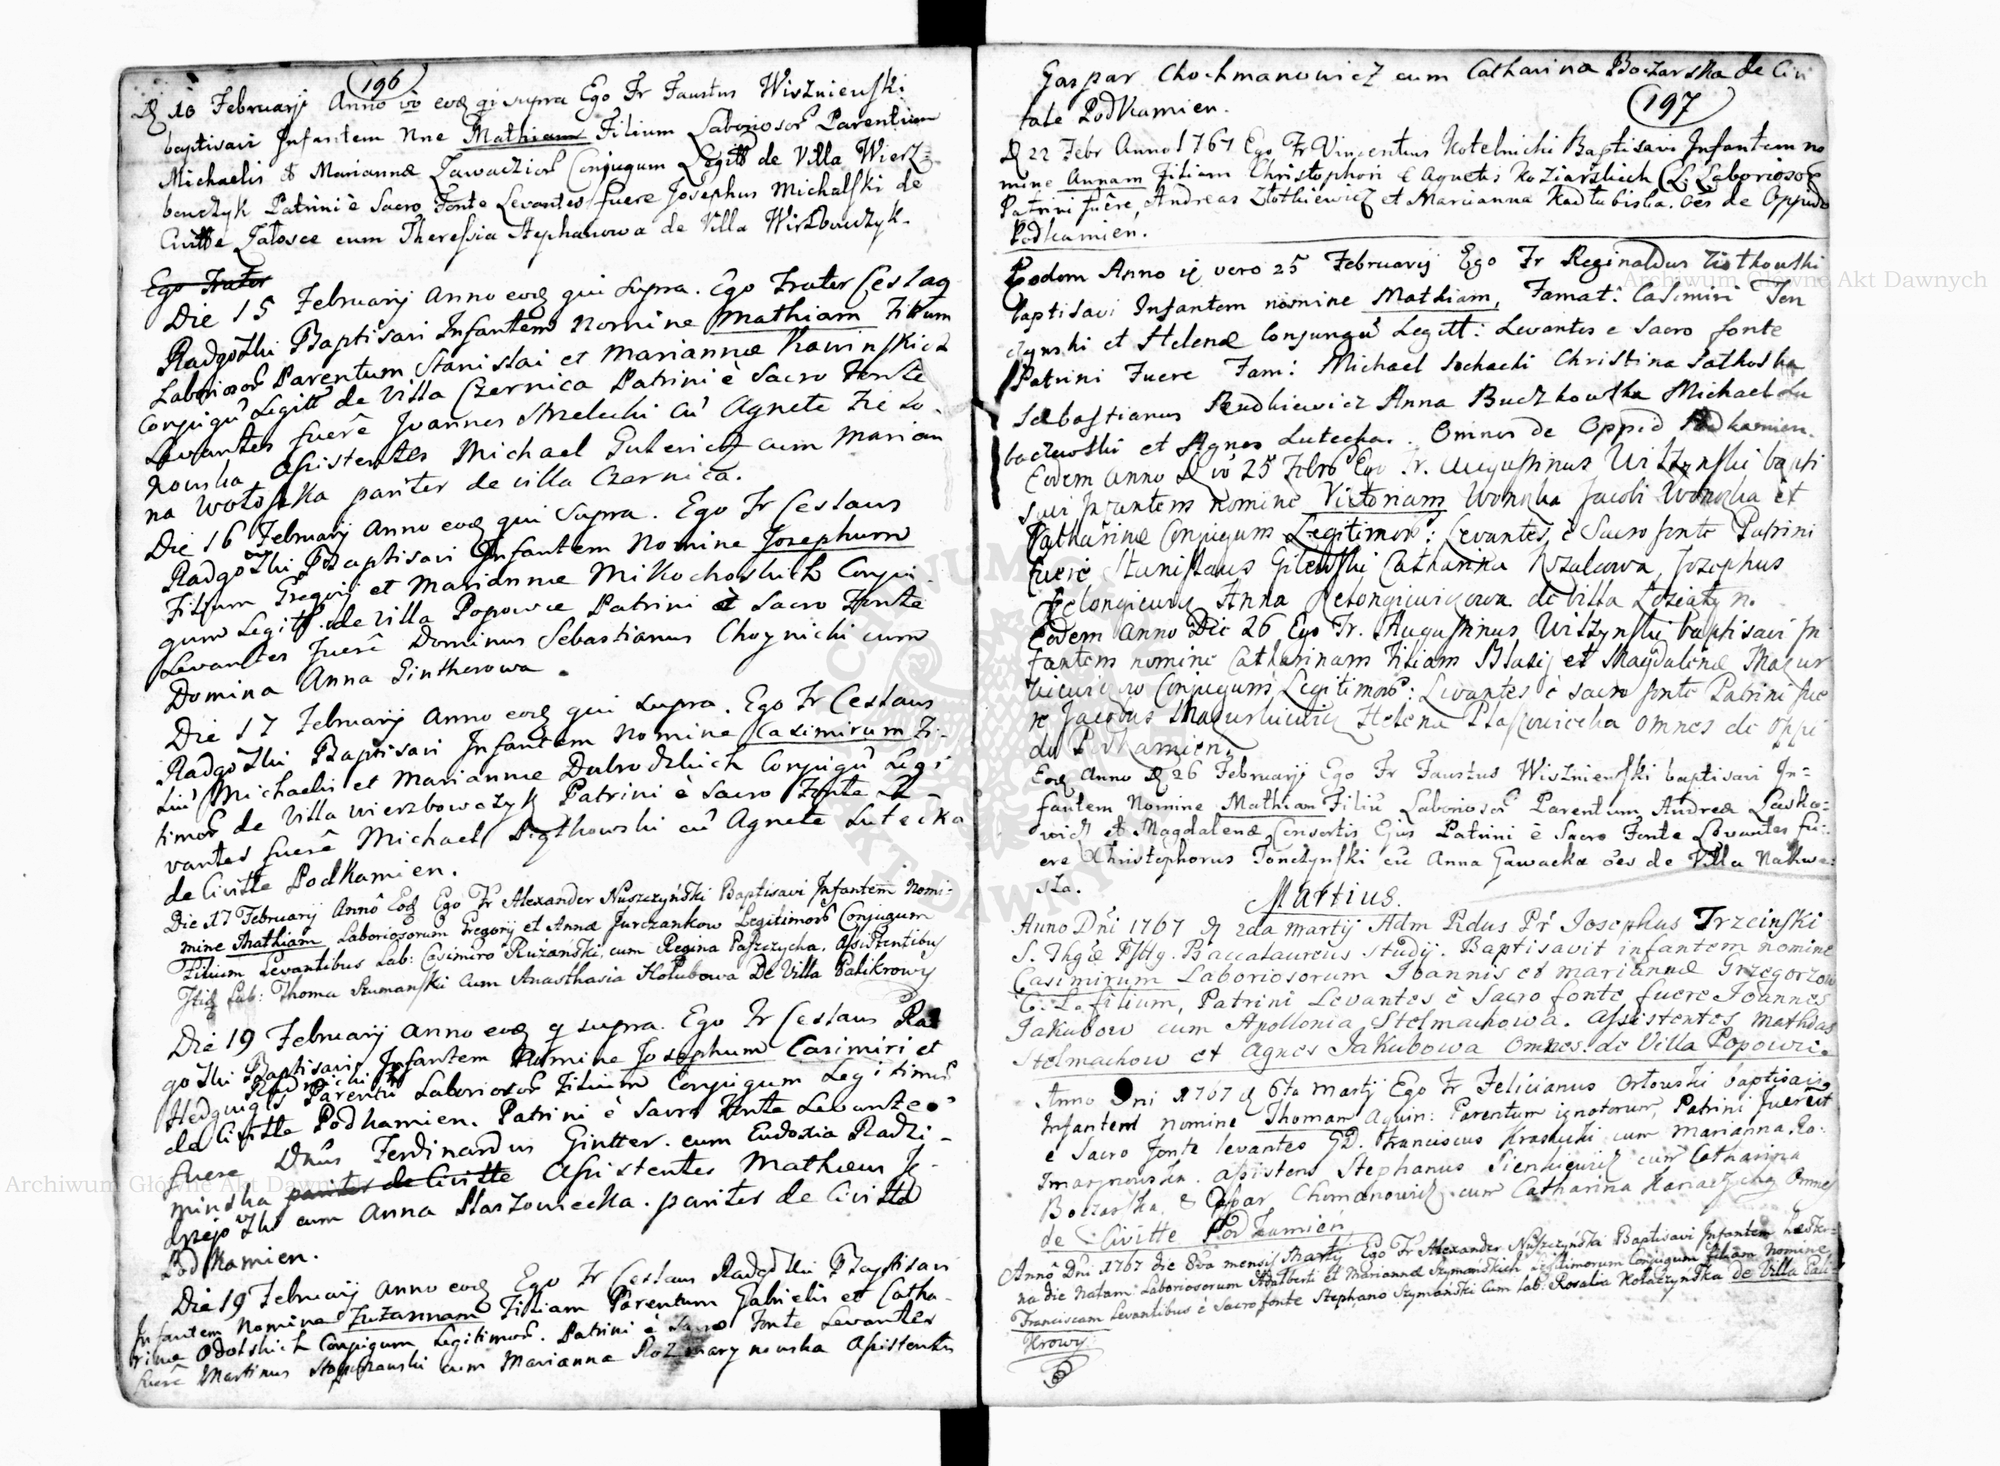 196
D 10 Februarij Anno vo eod qi supra Ego Fr Faustus Wiszniewski
baptisavi Infantem Nne Mathiam Filium Laboriosor Parentium
Michaelis et Mariannæ Conjugum Legitt de Villa Wierz
bowczyk Patrini è Sacro Fonte Levantes fuere Josephus Michalski de
Civitte Załosce cum Theressia Stephanowa de Villa Wirzbowczyk.
Ego Frater
Die 15 Februarij Anno eod qui supra. Ego Frater Ceslaq
Radgoski Baptisavi Infantem Nomine Mathiam Filium
Laboriosor Parentum Stanislai et Mariannæ
Conjugu Legitt de Villa Czernica Patrini è Sacro Fonte
Levantes fuerê Joannes Strzelecki cu Agnete
Assistentes Michael cum Marian
na pariter de villa Czernica.
Die 16 Februarij Anno eod qui Supra. Ego Fr Ceslaus
Radgoski Baptisavi Infantem Nomine Josephum
Filium Gregorij et Mariannæ Conju
gum Legitt. de Villa Popowce Patrini è Sacro Fonte
Levantes fuerê Dominus Sebastianus Choynicki cum
Domina Anna Gintherowa.
Die 17 Februarij Anno eod qui supra. Ego Fr Ceslaus
Radgoski Baptisavi Infantem Nomine Casimirum Fi-
liu Michaelis et Mariannæ Conjugu Legi
timor de Villa wierzbowczyk Patrini è Sacro Fonte Le-
vantes fuerê Michael cu Agnete Lutecka
de Civitte Podkamien.
Die 17 Februarij Annô Eod Ego Fr Alexander Nuszczyński Baptisavi Infantem Nomi-
mine Mathiam Laboriosorum Gregorij et Annæ Jurczankow Legitimorb Conjugum
Filium Levantibus Lab: Casimiro Ruzański, cum Regina Assistentibus
Lab: Thoma Szumanski cum Anasthasia Hołubowa De Villa Palikrowy
Die 19 Februarij Anno eod q supra. Ego Fr Ceslaus Rad
goski Baptisavi Infantem Nomine Josephum Casimiri et
Hedguigis Parentu Laboriosor Filium Conjugum Legitimor
de Civitte Podkamien. Patrini è Sacro Fonte Levantes
fuere Dnus Ferdinandus Gintter. cum Eudoxia Radzi-
minska pariter de Civitte Assistentes Mathæus
cum Anna Staszowiecka. pariter de Civitte
Podkamien.
Die 19 Februarij Anno eod Ego Fr Ceslaus Radgoski Baptisavi
Infantem Nomine Zuzannam Filiam Parentum Gabrielis et Catha-
rinæ Conjugum Legitimor. Patrini è Sacro Fonte Levantes
fuerê Martinus cum Marianna Rozmarynowska Assistentes
Gaspar Chochmanowicz cum Catharina Boczarska de Civi
tate Podkamien.
197
D 22 Febr Anno 1767 Ego Fr Vincentius Kotelnicki Baptisavi Infantem no
mine Annam Filiam Christophori è Agnetis Koziarskich C: L: Laboriosor
Patrini fuêre, Andreas Złotkiewicz et Marianna Kadłubiska. oes de Oppido
Podkamien.
Eodem Anno D vero 25 Februarij Ego Fr Reginaldus
baptisavi Infantem nomine Mathiam, Famat: Casimiri Ten
czynski et Helenæ Conjungu Legitt: Levantes e Sacro fonte
Patrini Fuere Fam: Michael Sochacki Christina
Sebastianus Rudkiewicz Anna Buczkowska Michael Lu
baczewski et Agnes Lutecka. Omnes de Oppid Podkamien.
Eodem Anno D vo 25 Febr Ego Fr. Augustinus Wiszynski bapti
savi Infantem nomine Victoriam Wonozka Jacobi Wonozka et
Catharinæ Conjugum Legitimorb: Levantes è Sacro fonte Patrini
fuere Stanislaus Gilewski Catharina Josephus
Anna de Villa
Eodem Anno Die 26 Ego Fr. Augustinus Wiszynski baptisavi In
fantem nomine Catharinam Filiam Blasij et Magdalenæ Mazur
kiewiczow Conjugum Legitimorb: Levantes è sacro fonte Patrini fue
re Jacobus Mazurkiewicz Helena Omnes de Oppi
do Podkamien.
Eod Anno D 26 Februarij Ego Fr Faustus Wiszniewski baptisavi In=
fantem Nomine Mathiam Filiu Laboriosor Parentum Andreæ Laska=
wich et Magdalenæ Consortis Ejus Patrini è Sacro Fonte Levantes fu=
ere Christophorus Tonczynski cu Anna Gawacka oes de Villa Nakwa=
sza.
Martius.
Anno Dni 1767 D 2da Martij Adm Rdus Pr Josephus Trzcinski
S. Thgæ Baccalaureus Studij. Baptisavit infantem nomine
Casimirum Laboriosorum Joannis et Mariannæ Grzegorzow
C. L. filium, Patrini Levantes è Sacro fonte fuere Joannes
Jakubow cum Apollonia Stelmachowa. Assistentes, Mathias
Stelmachow et Agnes Jakubowa Omnes de Villa Popowce.
Anno Dni 1767 D 6ta Martj Ego Fr Felicianus Orłowski baptisavi
Infantem nomine Thomam Aquin: Parentum ignotorum, Patrini fuerūt
è Sacro fonte levantes GD. Franciscus Krasucki cum Marianna. Ro:
zmarynowska. Assistens Stephanus Sienkiewicz cum Catharina
Boczarska. & Caspar Chomanowicz cum Catharina Omnes
de Civitte Podkamień
Annô Dni 1767 die 8va mensis Martij Ego Fr Alexander Nuszczyński Baptisavi Infantem
na die Natam Laboriosorum Adalberti et Mariannæ Szymanskich Legitimorum Conjugum filiam Nomine
Franciscam Levantibus è Sacro fonte Stephano Szymański Cum Lab: Rosalia Kołaczynska de Villa Pali-
krowy